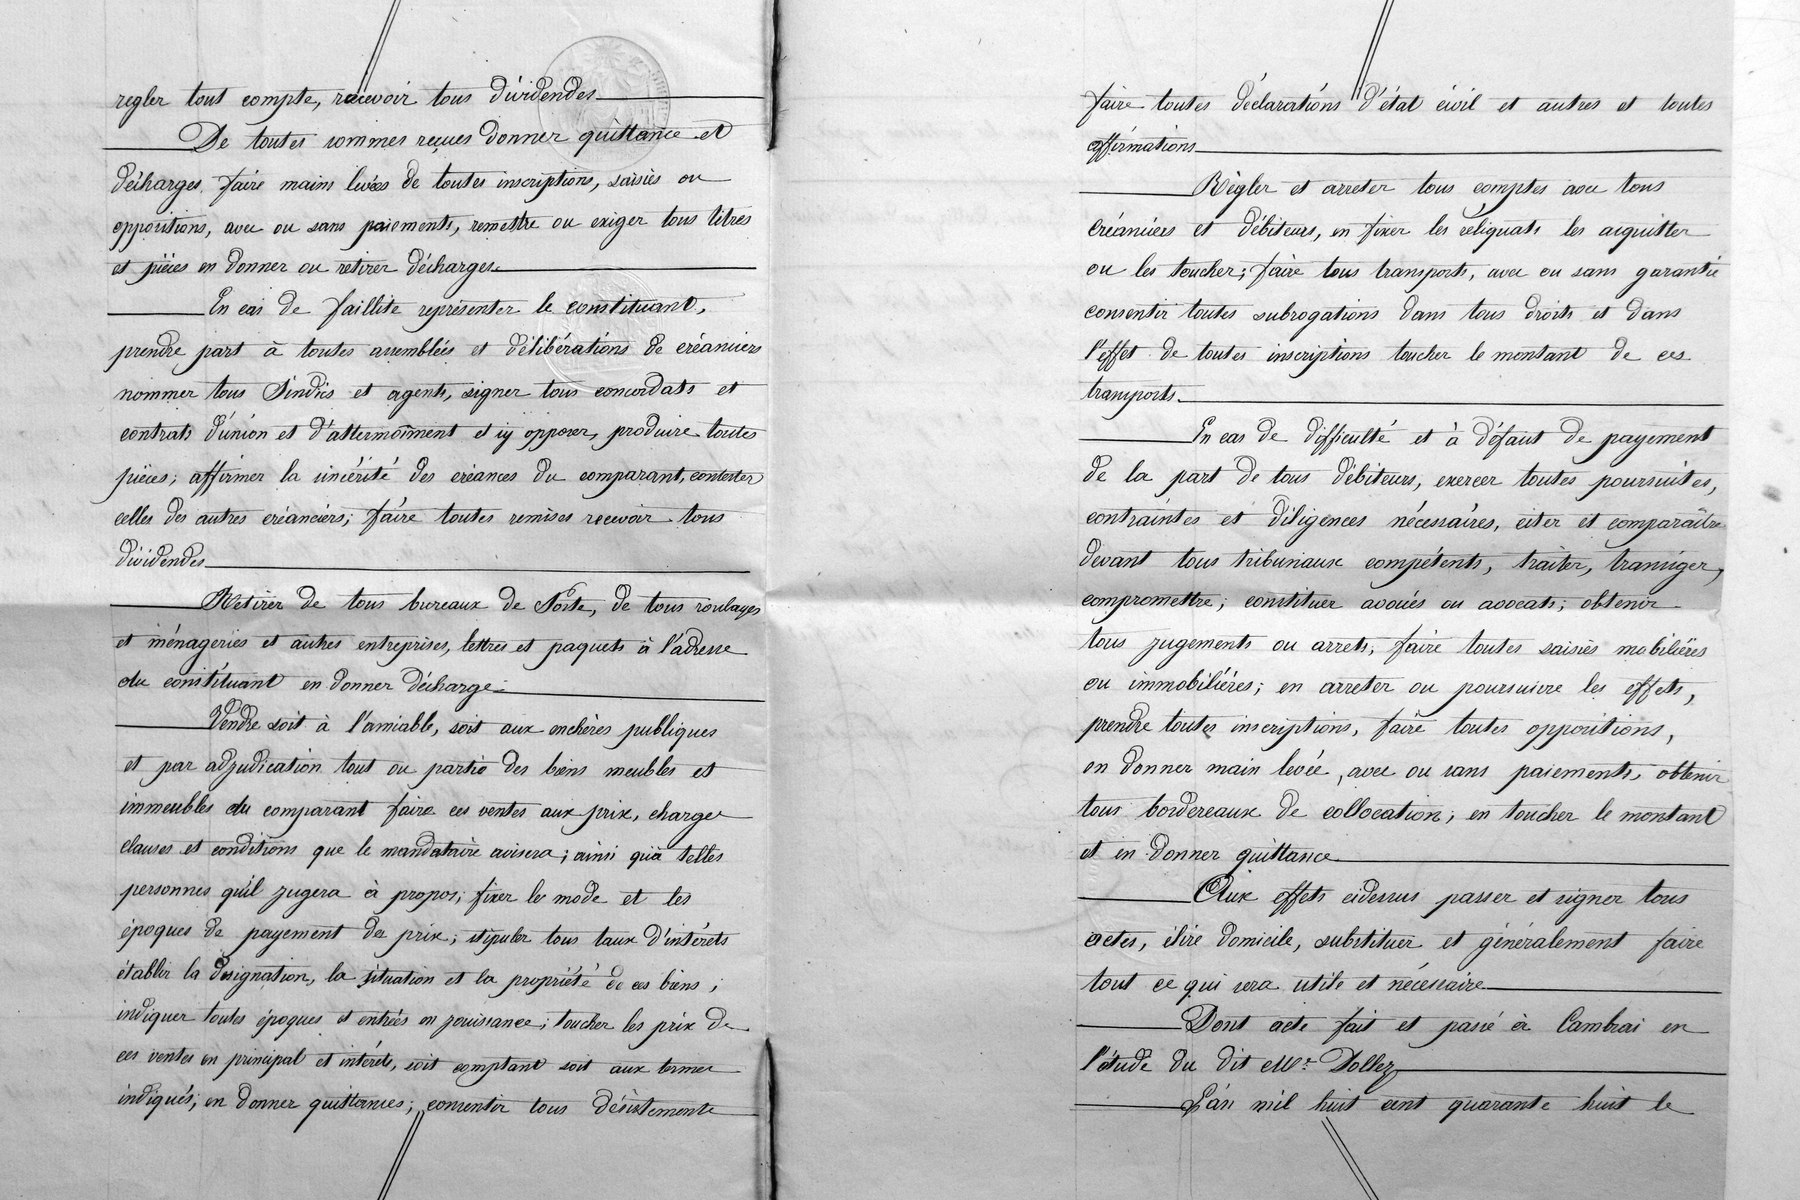 regler tout compte, recevoir tous dividendes
De toutes sommes reçues donner quittance et
décharges faire mains levées de toutes inscriptions, saisies ou
oppositions, avec ou sans paiements, remettre ou exiger tous titres
et pièces en donner ou retirer décharges.
En cas de faillite représenter le constituant,
prendre part à toutes assemblées et délibérations de créanciers
nommer tous Sindics et agents, signer tous concordats et
contrats d'union et d'attermoiment et iy opposer, produire toutes
pièces; affirmer la sincérité des créances du comparant, contester
celles des autres créanciers; faire toutes remises recevoir tous
dividendes
Retirer de tous bureaux de Poste, de tous roulages
et ménageries et autres entreprises, lettres et paquets à l'adresse
du constituant en donner décharge.
Vendre soit à l'amiable, soit aux enchères publiques
et par adjudication tout ou partie des biens meubles et
immeubles du comparant faire ces ventes aux prix, charges
clauses et conditions que le mandataire avisera; ainsi qu'à telles
personnes qu'il jugera à propos; fixer le mode et les
époques de payement des prix; stipuler tous taux d'intérêts
établir la désignation, la situation et la propriété de ces biens;
indiquer toutes époques et entrées en jouissance; toucher les prix de
ces ventes en principal et intérêts, soit comptant soit aux termes
indiqués; en donner quittances; consentir tous désistements
faire toutes déclarations d'état civil et autres et toutes
affirmations
Règler et arreter tous comptes avec tous
créanciers et débiteurs, en fixer les réliquats les acquitter
ou les toucher; faire tous transports, avec ou sans garantie
consentir toutes subrogations dans tous droits et dans
l'effet de toutes inscriptions toucher le montant de ces
transports.
En cas de difficulté et à défaut de payement
de la part de tous débiteurs, exercer toutes poursuites,
contraintes et diligences nécessaires, citer et comparaître
devant tous tribunaux compétents, traiter, transiger,
compromettre; constituer avoués ou avocats; obtenir
tous jugements ou arrets; faire toutes saisies mobilières
ou immobilières; en arreter ou poursuivre les effets,
prendre toutes inscriptions, faire toutes oppositions,
en donner main levée, avec ou sans paiements, obtenir
tous bordereaux de collocation; en toucher le montant
et en donner quittance
Aux effets cidessus passer et signer tous
actes, élire domicile, substituer et généralement faire
tout ce qui sera utile et nécessaire
Dont acte fait et passé à Cambrai en
l'étude du dit Mr. Dollez
L'an mil huit cent quarante huit le